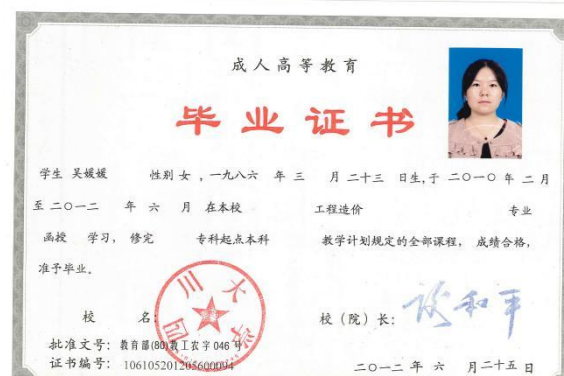 成人高等教育
毕业证书
学生 吴媛媛 性别 女 ，一九八六 年 三 月 二十三 日生，于 二〇一〇 年 二 月
至 二〇一二 年 六 月 在本校 工程造价 专业
函授 学习， 修完 专科起点本科 教学计划规定的全部课程， 成绩合格，
准予毕业。
校 名： 四川大学
校（院）长： 谢和平
批准文号： 教育部(80)教工农字 046 号
证书编号： 106105201205600094
二〇一二 年 六 月二十五 日